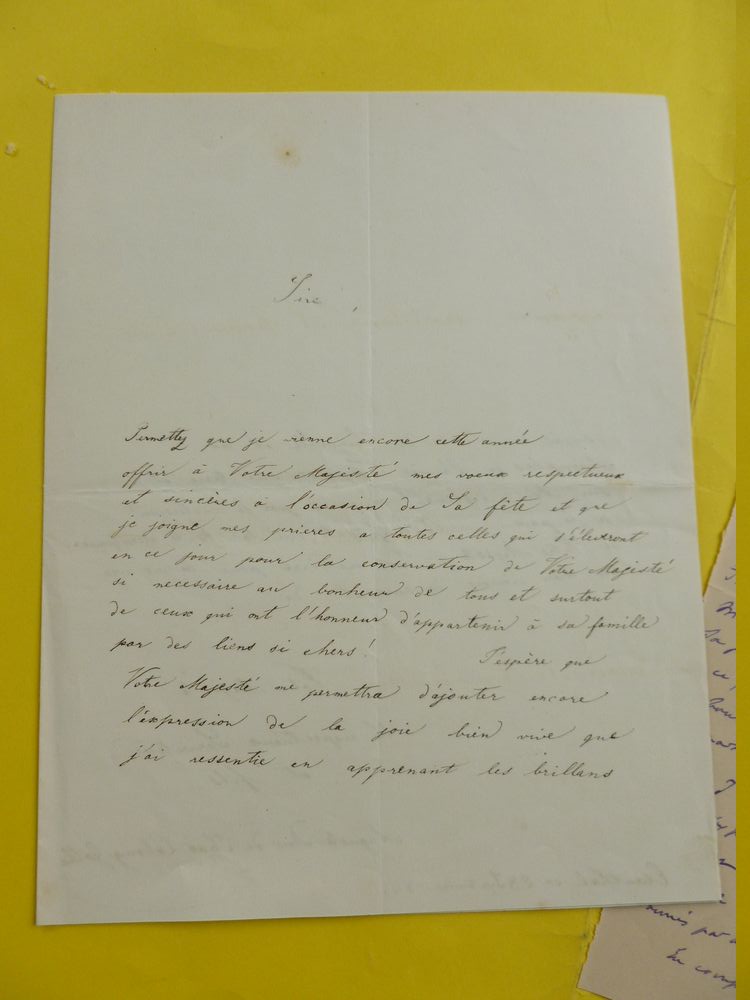 Sire,
Permettez que je vienne encore cette année
offrir à Votre Majesté mes voeux respectueux
et sincères à l'occasion de Sa fête et que
je joigne mes prieres a toutes celles qui s'élèvront
en ce jour pour la conservation de Votre Majesté
si necessaire au bonheur de tous et surtout
de ceux qui ont l'honneur d'appartenir à sa famille
par des liens si chers!
J'espère que
Votre Majesté me permettra d'ajouter encore
l'expression de la joie bien vive que
j'ai ressentie en apprenant les brillans